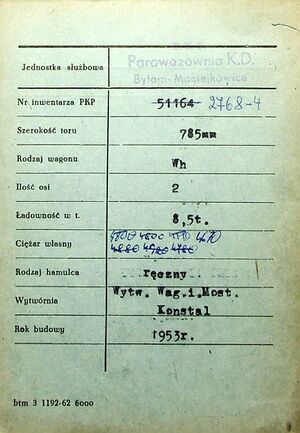 Parowozownia K.D.
Jednostka służbowa Bytom-Maciejkowice
Nr inwentarza PKP 51164 2768-4
Szerokość toru 785mm
Rodzaj wagonu Wh
Ilość osi 2
Ładowność w t. 8,5t.
4670
Ciężar własny
4880 4920 4780
Rodzaj hamulca ręczny
Wytw. Wag.i.Most.
Wytwórnia Konstal
Rok budowy 1953r.
btm 3 1192-62 6000